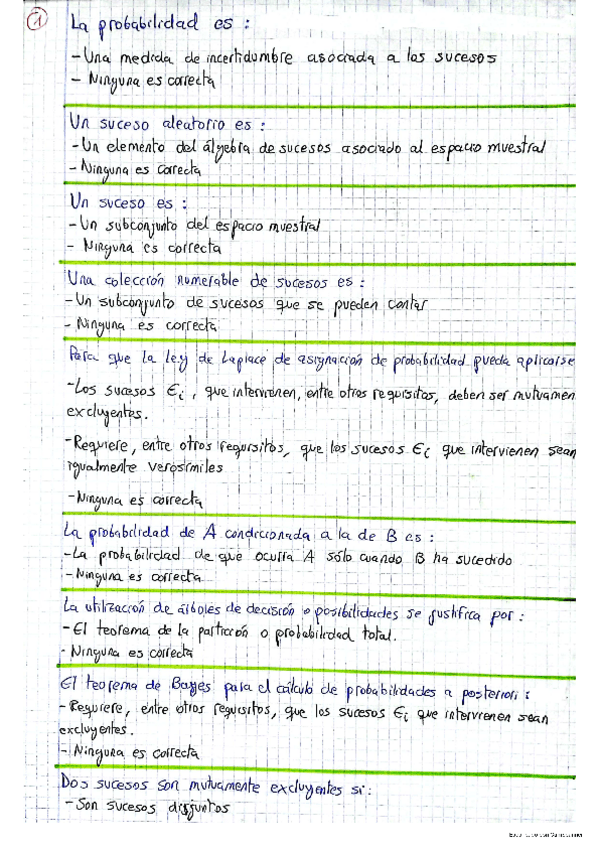 1
La probabilidad es :
- Una medida de incertidumbre asociada a los sucesos
- Ninguna es correcta
Un suceso aleatorio es :
- Un elemento del álgebra de sucesos asociado al espacio muestral
- Ninguna es correcta
Un suceso es :
- Un subconjunto del espacio muestral
- Ninguna es correcta
Una colección numerable de sucesos es :
- Un subconjunto de sucesos que se pueden contar
- Ninguna es correcta
Para que la ley de Laplace de asignación de probabilidad pueda aplicarse
- Los sucesos Ei , que intervienen, entre otros requisitos, deben ser mutuamen
excluyentes.
- Requiere, entre otros requisitos, que los sucesos Ei que intervienen sean
igualmente verosímiles
- Ninguna es correcta
La probabilidad de A condicionada a la de B es :
- La probabilidad de que ocurra A sólo cuando B ha sucedido
- Ninguna es correcta
La utilización de árboles de decisión o posibilidades se justifica por :
- El teorema de la partición o probabilidad total.
- Ninguna es correcta
El teorema de Bayes para el cálculo de probabilidades a posteriori :
- Requiere, entre otros requisitos, que los sucesos Ei que intervienen sean
excluyentes.
- Ninguna es correcta
Dos sucesos son mutuamente excluyentes si:
- Son sucesos disjuntos